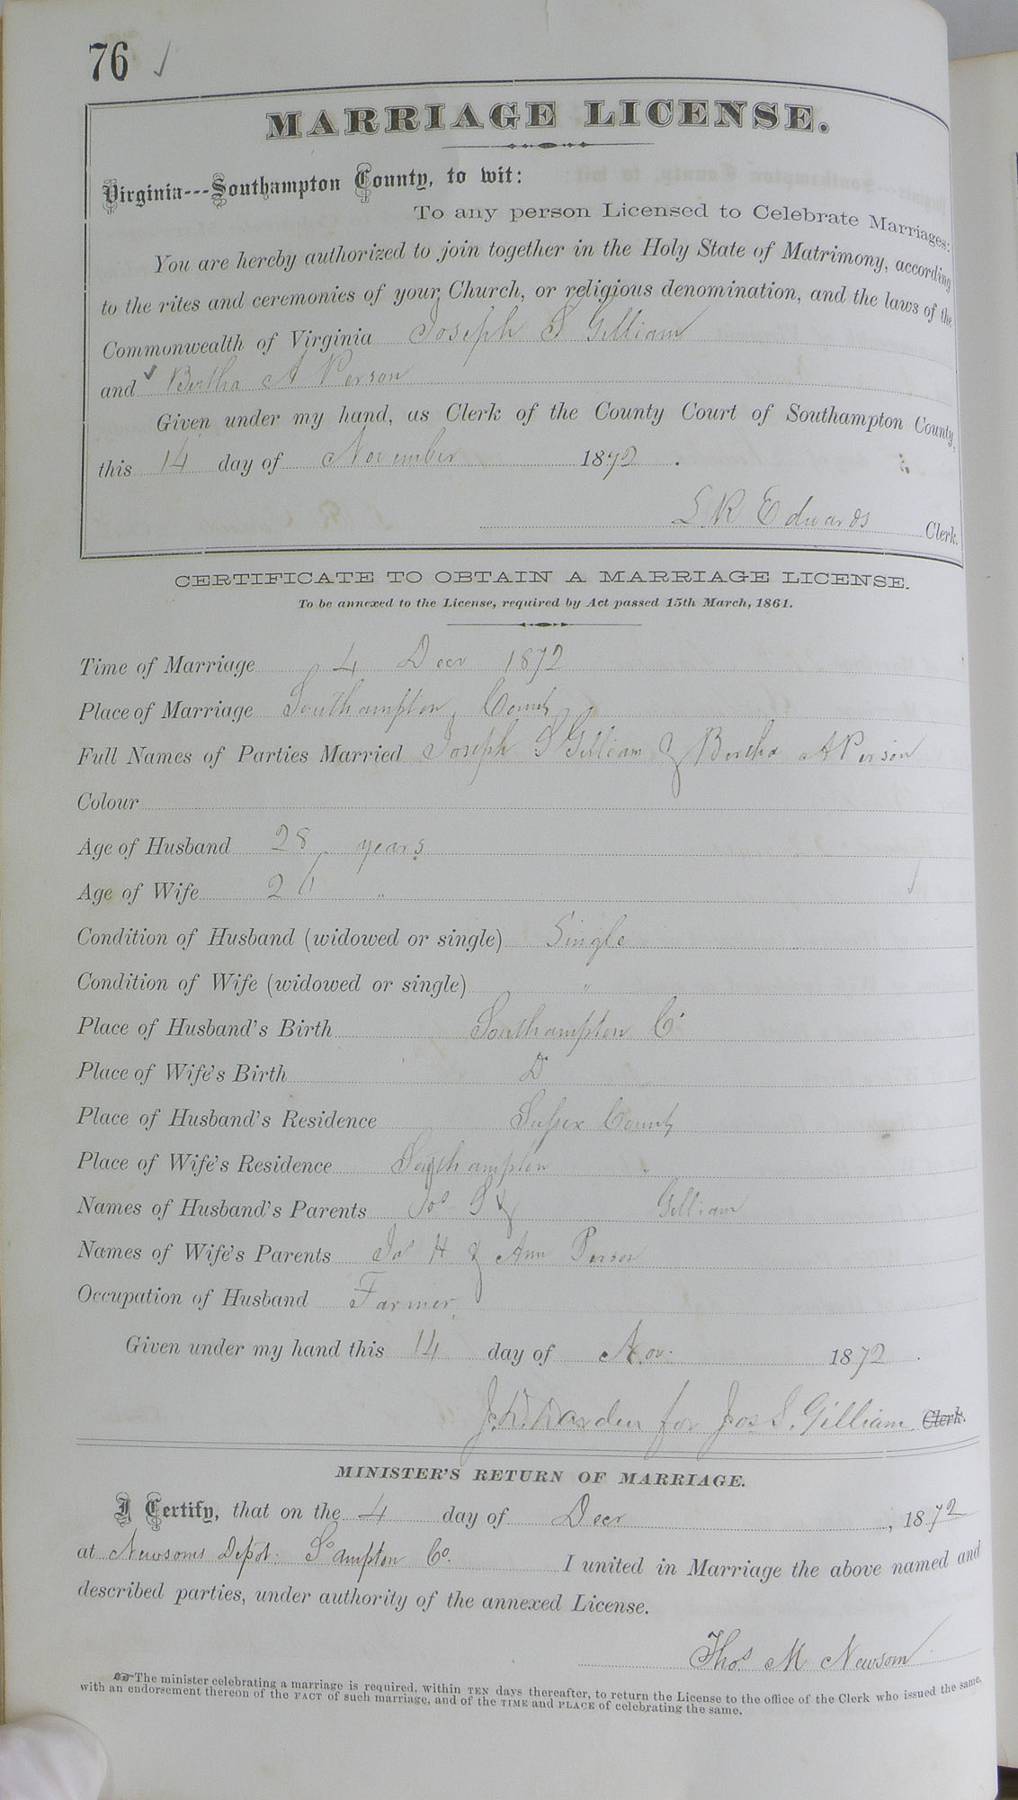 76 ✓
MARRIAGE LICENSE.
Virginia---Southampton County, to wit:
To any person Licensed to Celebrate Marriages:
You are hereby authorized to join together in the Holy State of Matrimony, according
to the rites and ceremonies of your Church, or religious denomination, and the laws of the
Commonwealth of Virginia Joseph S Gilliam
and ✓ Bertha A Person
Given under my hand, as Clerk of the County Court of Southampton County,
this 14 day of November 1872.
L R Edwards Clerk.
CERTIFICATE TO OBTAIN A MARRIAGE LICENSE.
To be annexed to the License, required by Act passed 15th March, 1861.
Time of Marriage 4 Decr 1872
Place of Marriage Southampton County
Full Names of Parties Married Joseph S Gilliam & Bertha A Person
Colour
Age of Husband 28 years
Age of Wife 21 "
Condition of Husband (widowed or single) Single
Condition of Wife (widowed or single) "
Place of Husband's Birth Southampton Co
Place of Wife's Birth Do
Place of Husband's Residence Sussex County
Place of Wife's Residence Southampton "
Names of Husband's Parents Jos S & Gilliam
Names of Wife's Parents H & Ann Person
Occupation of Husband Farmer
Given under my hand this 14 day of Nov. 1872.
J. D. Darden for Jos S. Gilliam Clerk.
MINISTER'S RETURN OF MARRIAGE.
I Certify, that on the 4 day of Decr, 1872
at Newsoms Depot. So ampton Co. I united in Marriage the above named and
described parties, under authority of the annexed License.
Thos M Newsom
☞ The minister celebrating a marriage is required, within TEN days thereafter, to return the License to the office of the Clerk who issued the same,
with an endorsement thereon of the FACT of such marriage, and of the TIME and PLACE of celebrating the same.